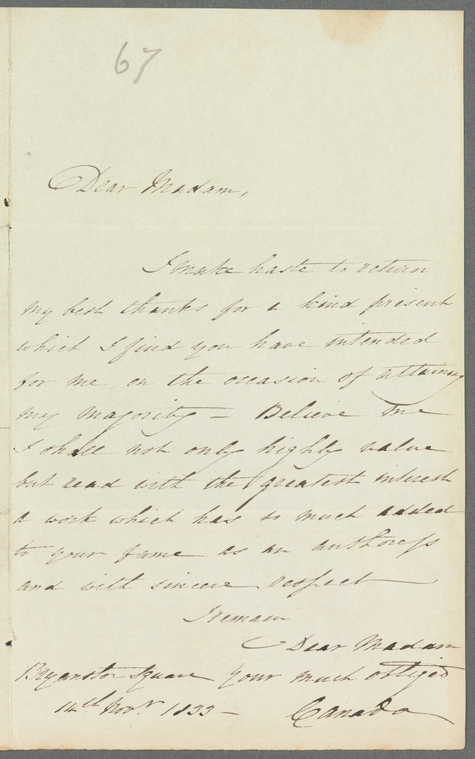 67
Dear Madam,
I make haste to return
my best thanks for a kind present
which I find you have intended
for me, on the occasion of attaining
my majority – Believe me
I shall not only highly value
but read with the greatest interest
a work which has so much added
to your fame as an authoress
and with sincere respect
I remain
Dear Madam
Bryanston Square your much obliged
14th Novr. 1833 –